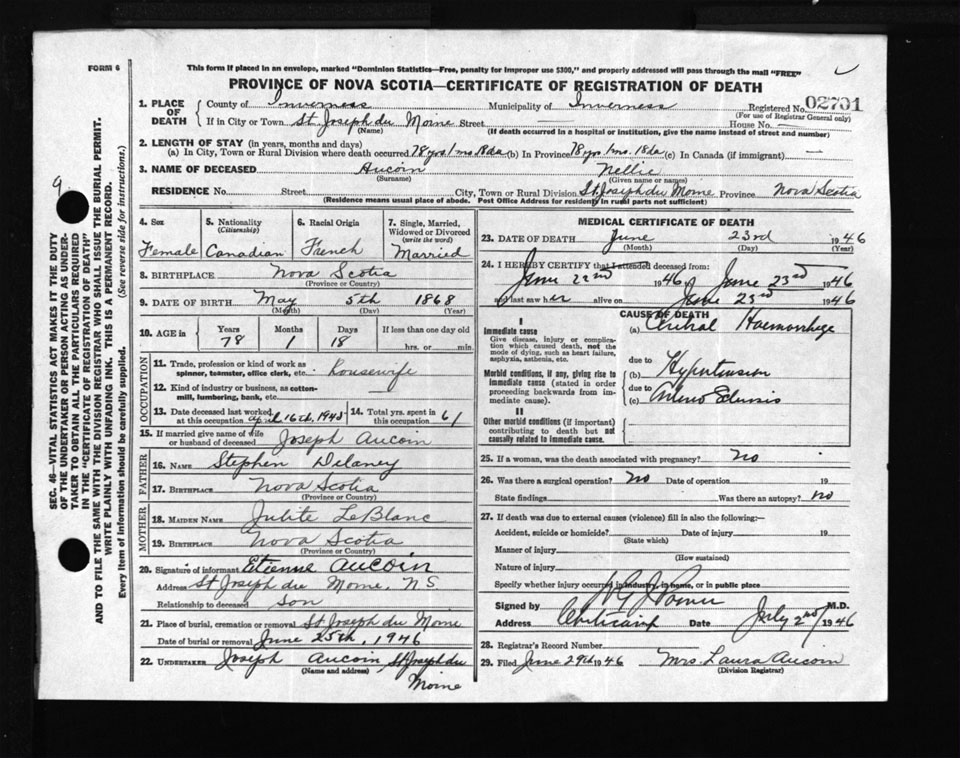 FORM 6
This form if placed in an envelope, marked "Dominion Statistics—Free, penalty for improper use $300," and properly addressed will pass through the mail "FREE"
PROVINCE OF NOVA SCOTIA—CERTIFICATE OF REGISTRATION OF DEATH
1. PLACE OF DEATH County of Inverness Municipality of Inverness Registered No. 02701
(For use of Registrar General only)
If in City or Town St. Joseph du Moine Street — House No. —
(Name) (If death occurred in a hospital or institution, give the name instead of street and number)
2. LENGTH OF STAY (in years, months and days)
(a) In City, Town or Rural Division where death occurred 78 yrs 1 mo 18 da (b) In Province 78 yrs 1 mo. 18 da (c) In Canada (if immigrant) —
3. NAME OF DECEASED Aucoin Nellie
(Surname) (Given name or names)
RESIDENCE No. Street City, Town or Rural Division St. Joseph du Moine Province Nova Scotia
(Residence means usual place of abode. Post Office Address for residents in rural parts not sufficient)
4. Sex 5. Nationality (Citizenship) 6. Racial Origin 7. Single, Married, Widowed or Divorced (write the word)
Female Canadian French Married
8. BIRTHPLACE Nova Scotia
(Province or Country)
9. DATE OF BIRTH May 5th 1868
(Month) (Day) (Year)
10. AGE in Years Months Days If less than one day old
78 1 18 hrs. or min.
OCCUPATION
11. Trade, profession or kind of work as spinner, teamster, office clerk, etc. Housewife
12. Kind of industry or business, as cotton-mill, lumbering, bank, etc.
13. Date deceased last worked at this occupation April 16th, 1945 14. Total yrs. spent in 61
15. If married give name of wife or husband of deceased Joseph Aucoin
FATHER
16. NAME Stephen Delaney
17. BIRTHPLACE Nova Scotia
(Province or Country)
MOTHER
18. MAIDEN NAME Julite LeBlanc
19. BIRTHPLACE Nova Scotia
(Province or Country)
20. Signature of informant Etienne Aucoin
Address St Joseph du Moine, NS
Relationship to deceased Son
21. Place of burial, cremation or removal St Joseph du Moine
Date of burial or removal June 25th, 1946
22. UNDERTAKER Joseph Aucoin St Joseph du
(Name and address) Moine
MEDICAL CERTIFICATE OF DEATH
23. DATE OF DEATH June 23rd 1946
(Month) (Day) (Year)
24. I HEREBY CERTIFY that I attended deceased from:
June 22nd 1946 June 23rd 1946
and last saw her alive on June 23rd 1946
CAUSE OF DEATH
I
Immediate cause (a) Haemorrhage
Give disease, injury or complication which caused death, not the mode of dying, such as heart failure, asphyxia, asthenia, etc.
due to
Morbid conditions, if any, giving rise to immediate cause (stated in order proceeding backwards from immediate). (b) Hypertension
due to
(c)
II
Other morbid conditions (if important) contributing to death but not causally related to immediate cause.
25. If a woman, was the death associated with pregnancy? No
26. Was there a surgical operation? No Date of operation 19
State findings Was there an autopsy? no
27. If death was due to external causes (violence) fill in also the following:—
Accident, suicide or homicide? Date of injury 19
(State which)
Manner of injury
(How sustained)
Nature of injury
Specify whether injury occurred in industry, in home, or in public place
Signed by M.D.
Address Cheticamp Date July 2nd 1946
28. Registrar's Record Number
29. Filed June 29th 1946 Mrs. Laura Aucoin
(Division Registrar)
SEC. 46—VITAL STATISTICS ACT MAKES IT THE DUTY
OF THE UNDERTAKER OR PERSON ACTING AS UNDER-
TAKER TO OBTAIN ALL THE PARTICULARS REQUIRED
IN THE "CERTIFICATE OF REGISTRATION OF DEATH"
AND TO FILE THE SAME WITH THE DIVISION REGISTRAR WHO SHALL ISSUE THE BURIAL PERMIT.
WRITE PLAINLY WITH UNFADING INK. THIS IS A PERMANENT RECORD.
Every item of information should be carefully supplied. (See reverse side for instructions.)
9